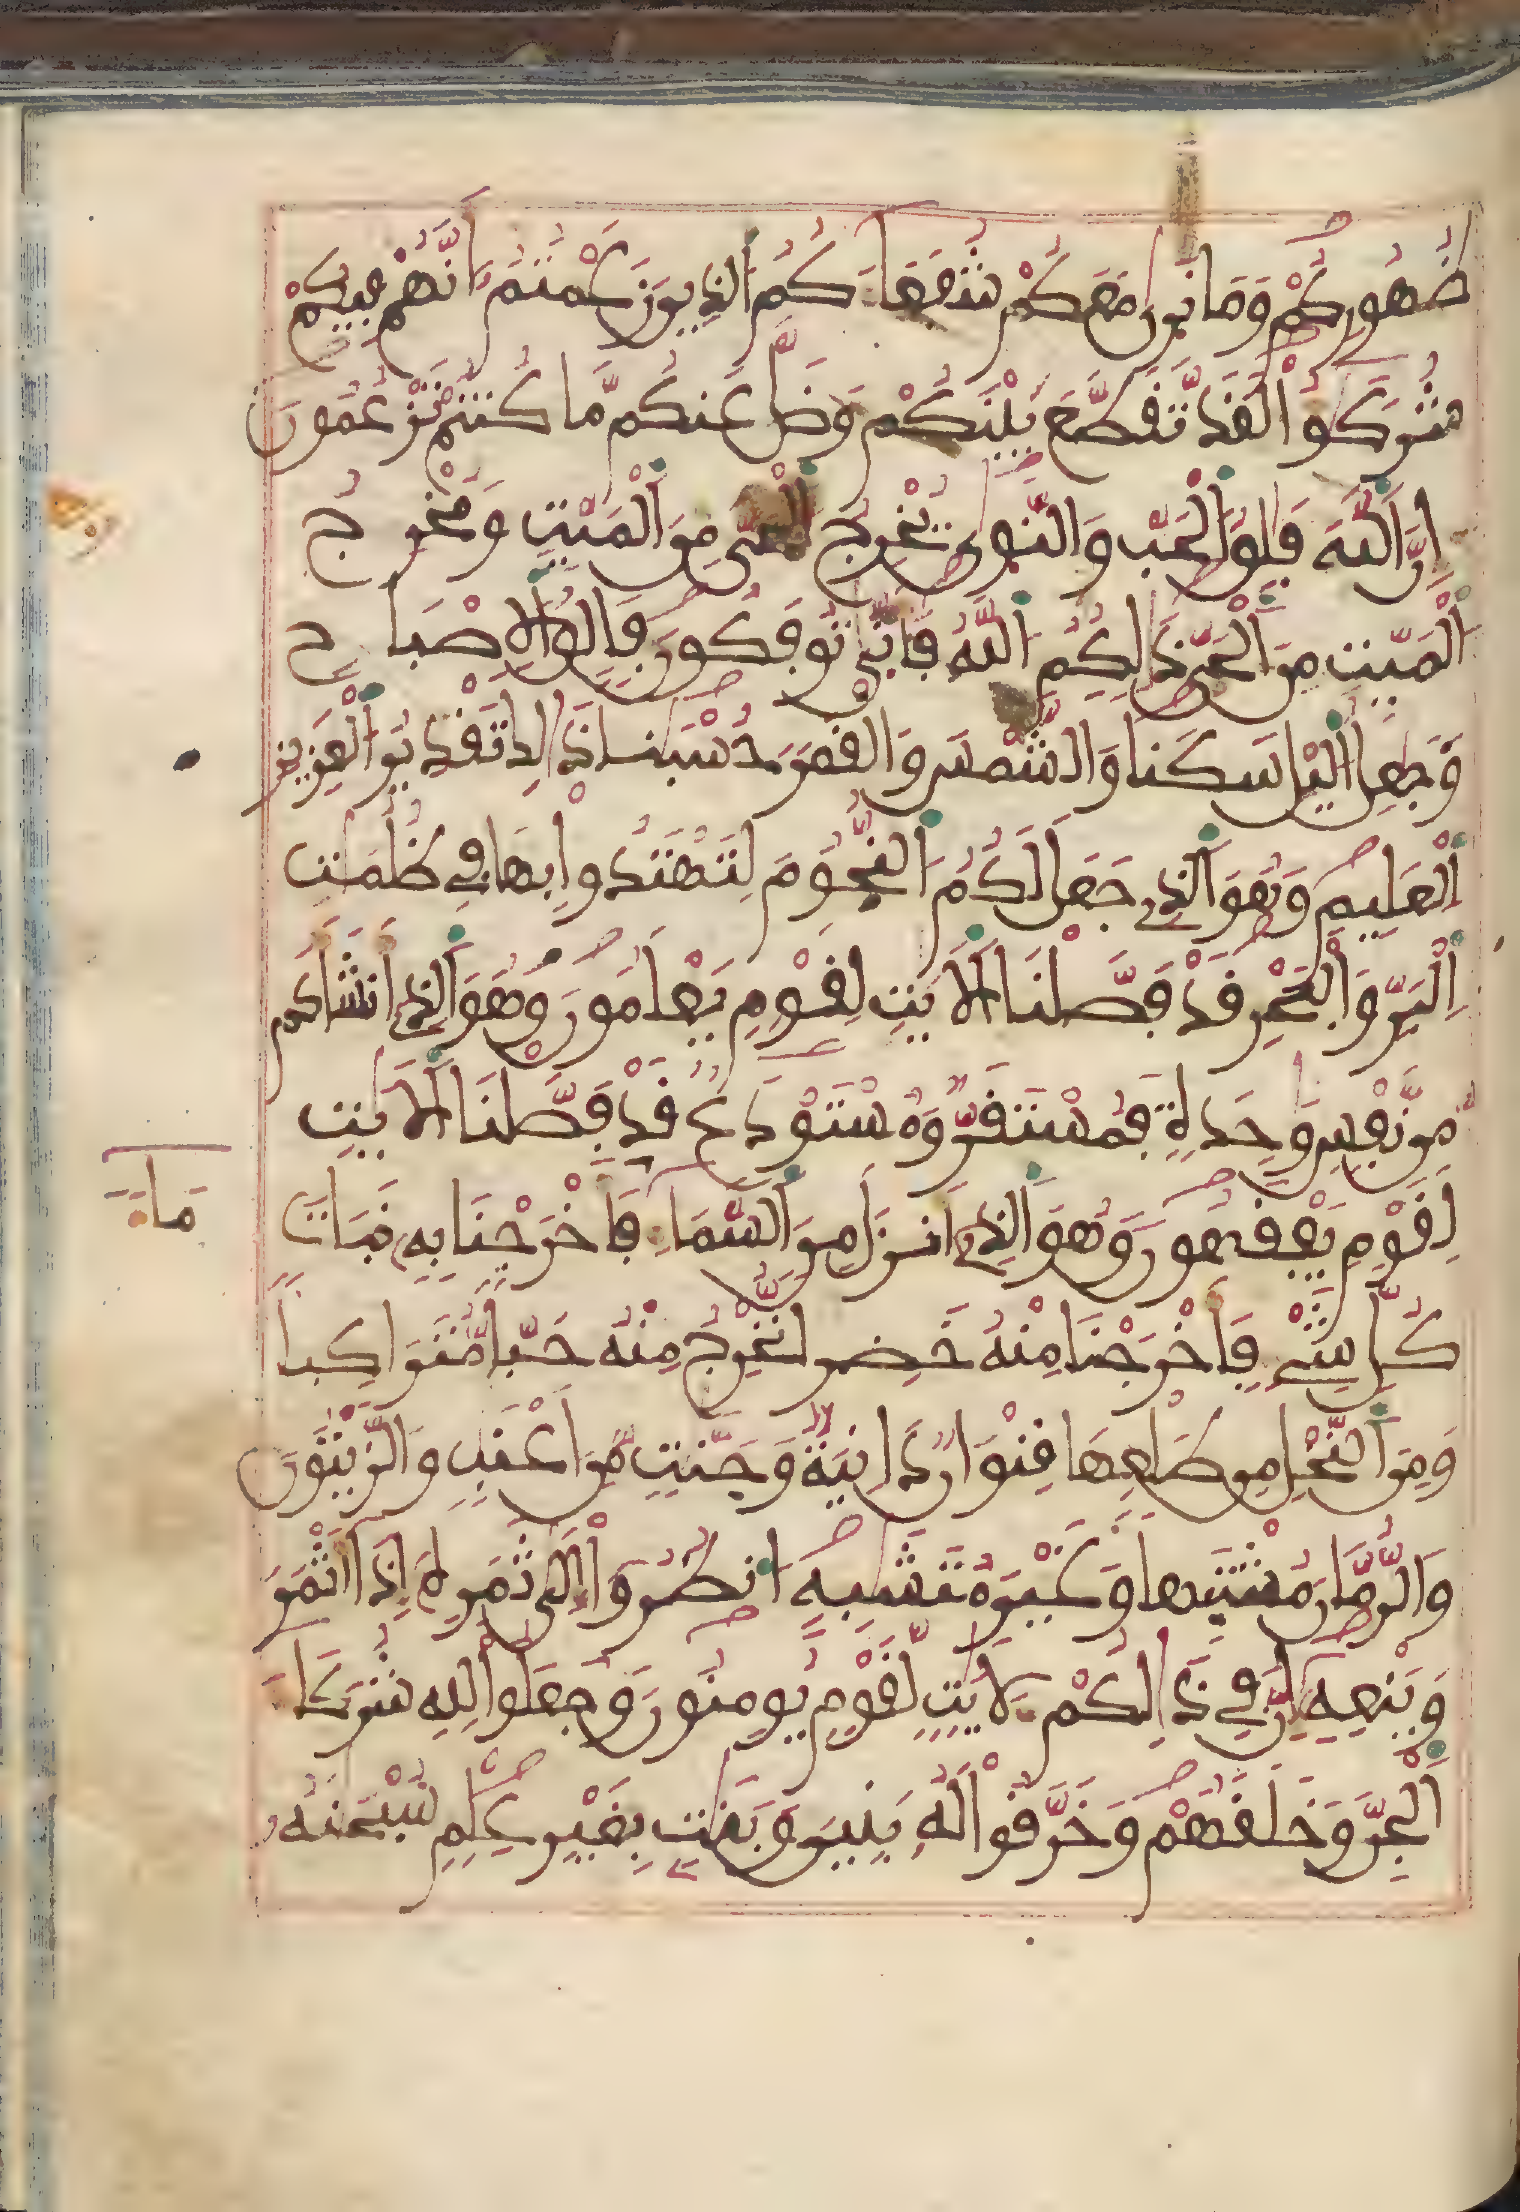 ظُهُورِكُمْ وَمَا نَرٰى مَعَكُمْ شُفَعَآءَكُمُ الذِينَ زَعَمْتُمُۥٓ أَنَّهُمْ فِيكُمْ
شُرَكَٰٓؤُاْ لَقَد تَّقَطَّعَ بَيْنَكُمْ وَضَلَّ عَنكُم مَّا كُنتُمْ تَزْعُمُونَ
إِنَّ اَللَّهَ فَٰلِقُ اُلْحَبِّ وَالنَّوٰى يُخْرِجُ اُلْحَيَّ مِنَ اَلْمَيِّتِ وَمُخْرِجُ
اُلْمَيِّتِ مِنَ اَلْحَيِّ ذَٰلِكُمُ اُللَّهُ فَأَنّٰى تُوفَكُونَ فَالِقُ اُلْإِصْبَاحِ
وَجَٰعِلُ اُلَّيْلِ سَكَناً وَالشَّمْسَ وَالْقَمَرَ حُسْبَٰناً ذَٰلِكَ تَقْدِيرُ اُلْعَزِيزِ
اِلْعَلِيمِ وَهُوَ اَلذِے جَعَلَ لَكُمُ اُلنُّجُومَ لِتَهْتَدُواْ بِهَا فِي ظُلُمَٰتِ
اِلْبَرِّ وَالْبَحْرِ قَدْ فَصَّلْنَا اَلْأٓيَٰتِ لِقَوْمٍ يَعْلَمُونَ وَهُوَ اَلذِےٓ أَنشَأَكُم
مِّن نَّفْسٍ وَٰحِدَةٍ فَمُسْتَقَرٌّ وَمُسْتَوْدَعٌ قَدْ فَصَّلْنَا اَلْأٓيَٰتِ
لِقَوْمٍ يَفْقَهُونَ وَهُوَ اَلذِےٓ أَنزَلَ مِنَ اَلسَّمَآءِ مَآءً
فَأَخْرَجْنَا بِهِۦ نَبَاتَ
كُلِّ شَےْءٍ فَأَخْرَجْنَا مِنْهُ خَضِراً نُّخْرِجُ مِنْهُ حَبّاً مُّتَرَاكِباً
وَمِنَ اَلنَّخْلِ مِن طَلْعِهَا قِنْوَانٌ دَانِيَةٌ وَجَنَّٰتٍ مِّنَ اَعْنَٰبٍ وَالزَّيْتُونَ
وَالرُّمَّانَ مُشْتَبِهاً وَغَيْرَ مُتَشَٰبِهٍ اُنظُرُوٓاْ إِلَىٰ ثَمَرِهِۦٓ إِذَآ أَثْمَرَ
وَيَنْعِهِۦٓ إِنَّ فِي ذَٰلِكُمْ لَأٓيَٰتٍ لِّقَوْمٍ يُومِنُونَ وَجَعَلُواْ لِلهِ شُرَكَآءَ
اَلْجِنَّ وَخَلَقَهُمْ وَخَرَّقُواْ لَهُۥ بَنِينَ وَبَنَٰتٍ بِغَيْرِ عِلْمٍ سُبْحَٰنَهُۥ